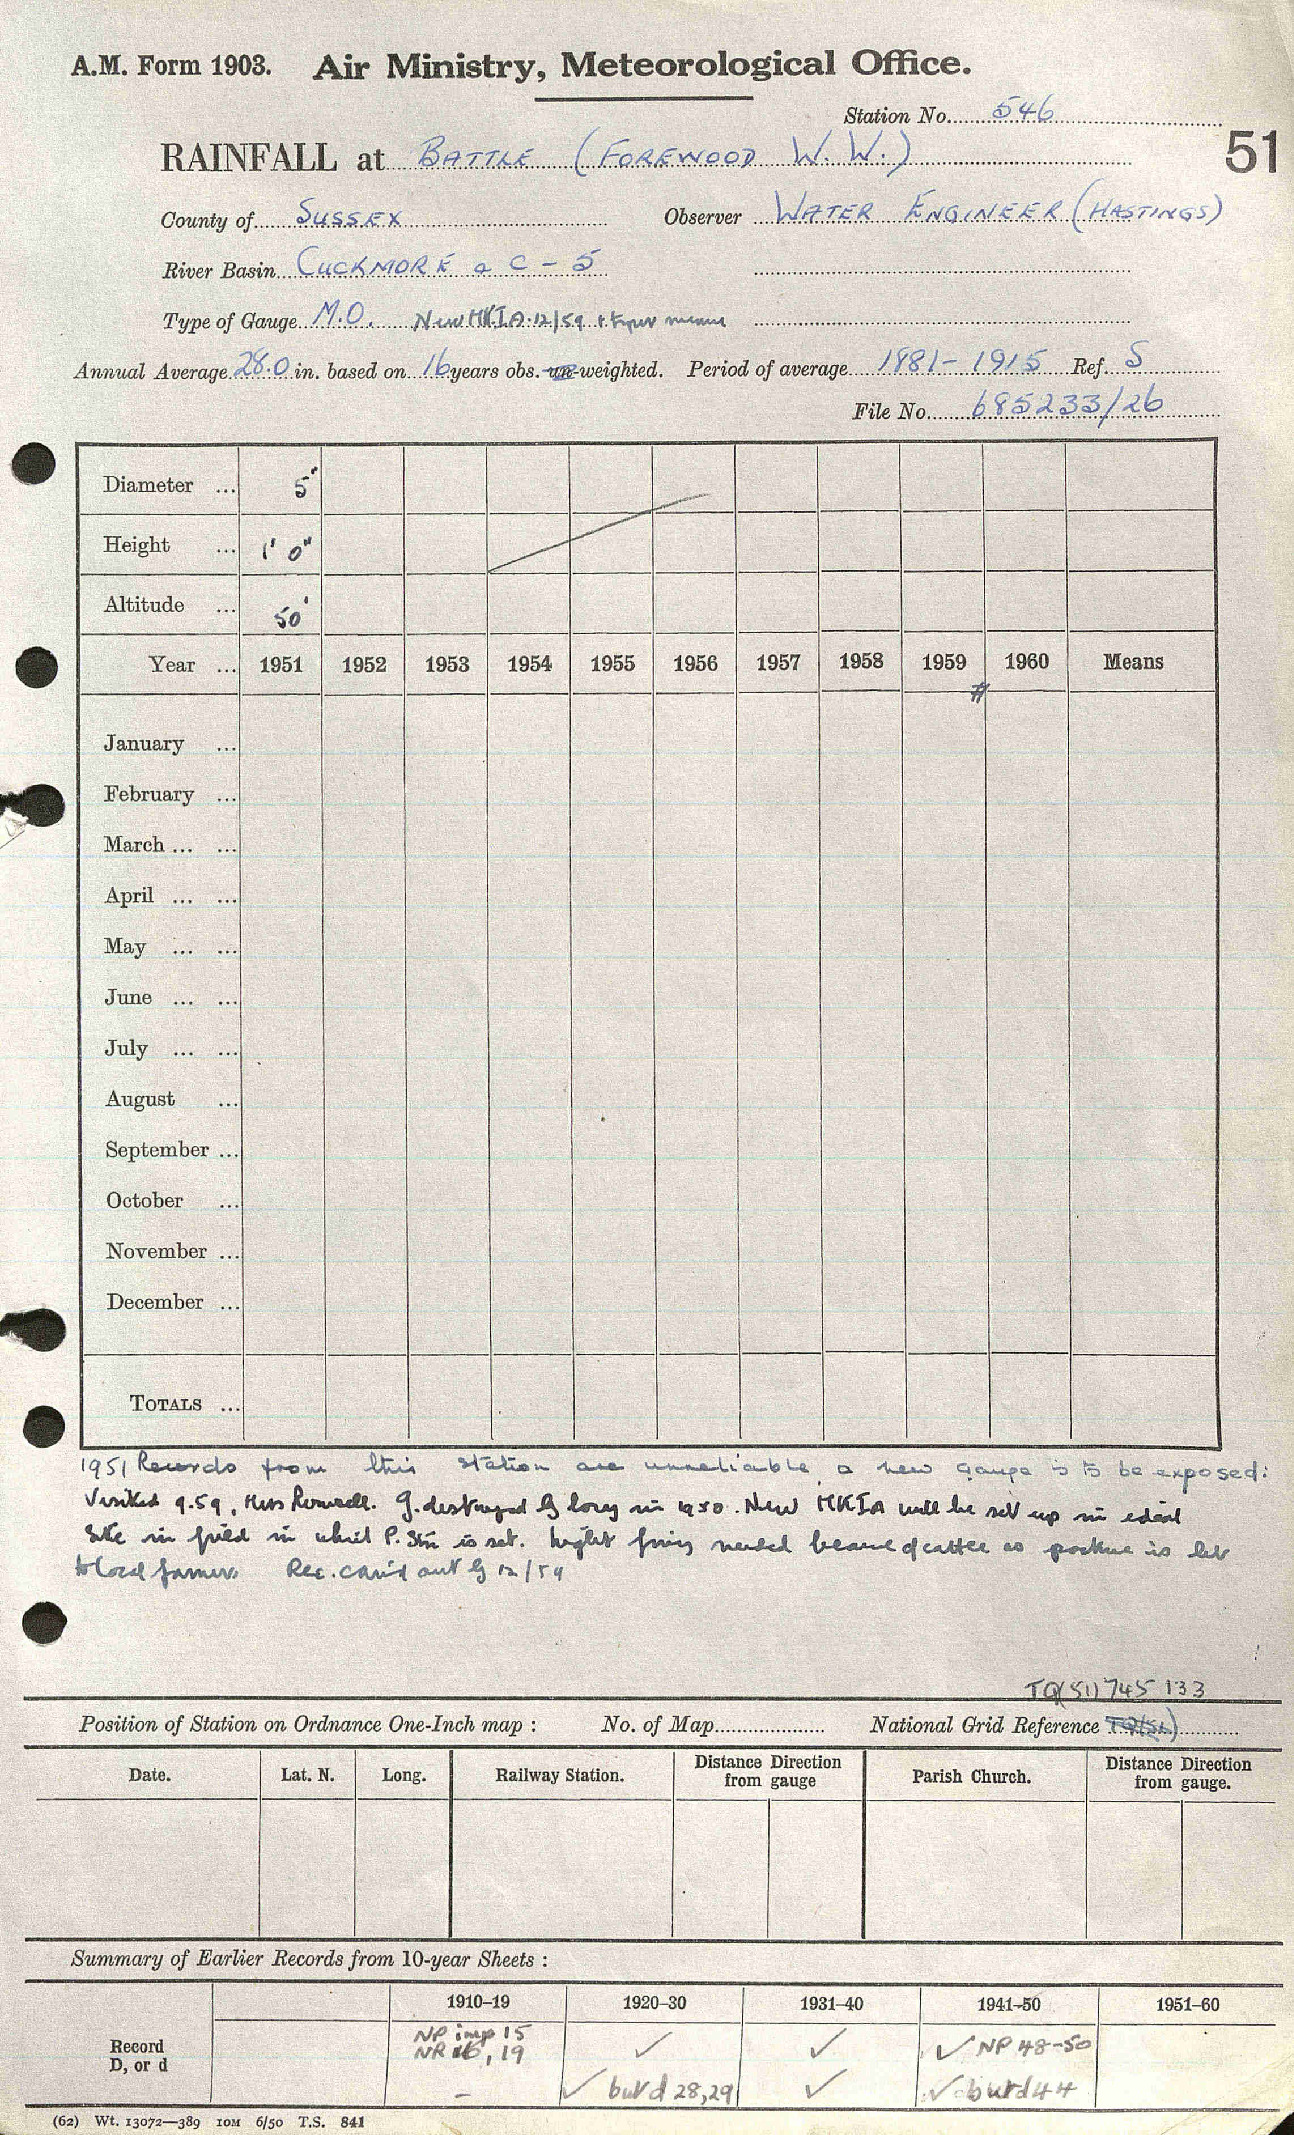 A.M. Form 1903. Air Ministry, Meteorological Office.
Station No. 546
51
RAINFALL at BATTLE (FOREWOOD W. W.)
County of SUSSEX Observer WATER ENGINEER (HASTINGS)
River Basin CUCKMORE a C - 5
Type of Gauge M.O. New MKIA 12/59
Annual Average 28.0 in. based on 16 years obs. un-weighted. Period of average 1881-1915 Ref. S
File No. 685233/26
Diameter ... 5"
Height ... 1' 0"
Altitude ... 50'
Year ... 1951 1952 1953 1954 1955 1956 1957 1958 1959 1960 Means
#
January ...
February ...
March ... ...
April ... ...
May ... ...
June ... ...
July ... ...
August ...
September ...
October ...
November ...
December ...
TOTALS ...
1951 Records from this station are unreliable, a new gauge is to be exposed.
Visited 9.59, G. destroyed by lorry in 1950. New MKIA will be set up in ideal
site in field in which P. Stn is set. fencing needed because of cattle as pasture is let
to local farmers. Rec. carri'd out by 12/59
TQ(51)745 133
Position of Station on Ordnance One-Inch map : No. of Map National Grid Reference TQ(51)
Date. Lat. N. Long. Railway Station. Distance Direction from gauge Parish Church. Distance Direction from gauge.
Summary of Earlier Records from 10-year Sheets :
1910-19 1920-30 1931-40 1941-50 1951-60
Record NP imp 15 ✓ ✓ ✓ NP 48-50
D, or d NR 16, 19
- ✓ but d 28,29 ✓ ✓ but d 44
(62) Wt. 13072—389 10M 6/50 T.S. 841